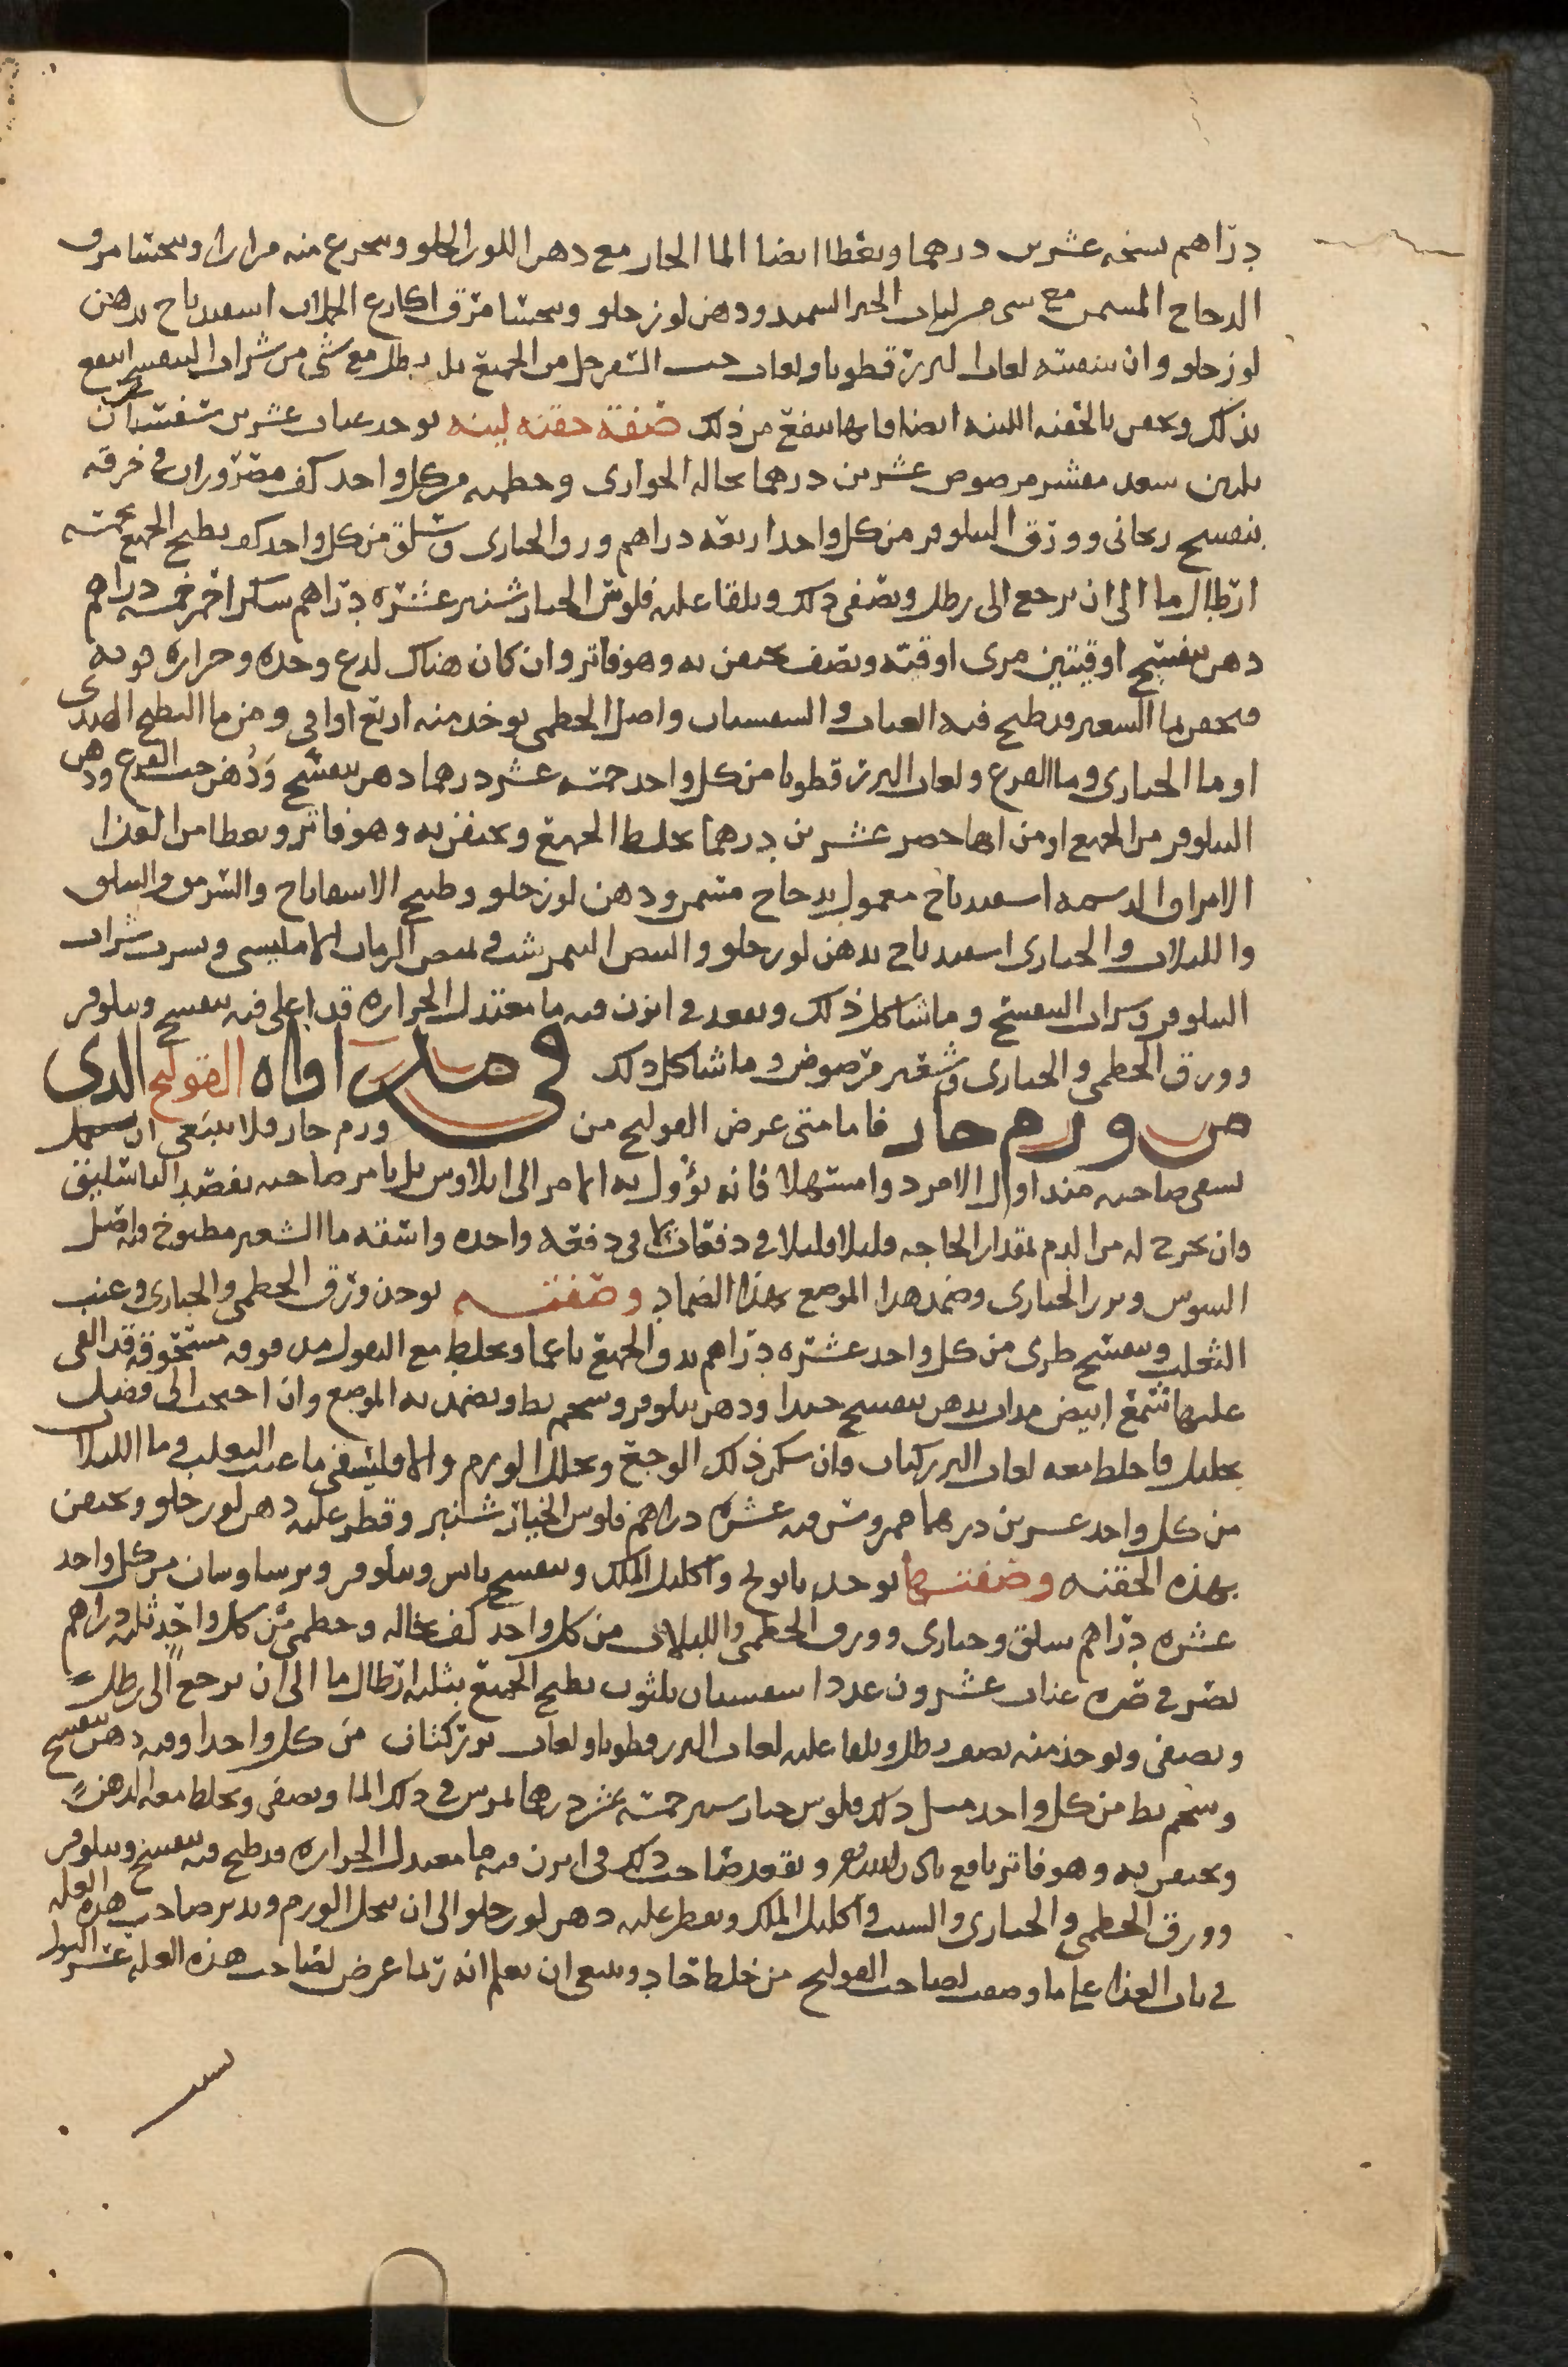 دراهم بنفسج عشرين درهما ويعطا ايضا الما الحار مع دهن اللوز الحلو ويتجرع منه مرارا ويتحسا مرق
الدجاج المسمن مع شي من لباب الخبز السميد ودهن لوز حلو ويتحسا مرق اكارع الحملان اسفيدباج بدهن
لوز حلو وان سقيته لعاب البزر قطونا ولعاب حب السفرجل من الجميع ثلث رطل مع شي من شراب البنفسج انتفع
بذلك ويحقن بالحقنه اللينه ايضا فانها تنفع من ذلك صفة حقنه لينه يوخذ عناب عشرين سفستان
ثلثين شعير مقشر مرضوض عشرين درهما نخاله الحوارى وخطميه من كل واحد كف مصروران في خرقه
بنفسج ريحانى وورق النيلوفر من كل واحد اربعه دراهم ورق الخبازى وسلق من كل واحد كف يطبخ الجميع بخمسه
ارطال ما الى ان يرجع الى رطل ويصفى ذلك ويلقا عليه فلوس الخيار شنبر عشره دراهم سكر احمر خمسه دراهم
دهن بنفسج اوقيتين مرى اوقيه ونصف يحقن به وهو فاتر وان كان هناك لدع وحده وحراره قويه
فيحقن بما الشعير قد طبخ فيه العناب والسبستان واصل الخطمى يوخذ منه اربع اواقى ومن ما البطيخ الهندى
او ما الخبازى وما القرع ولعاب البزر قطونا من كل واحد خمسه عشر درهما دهن بنفسج ودهن حب القرع ودهن
النيلوفر من الجميع او من ايها حضر عشرين درهما يخلط الجميع ويحقن به وهو فاتر ويعطا من الغذا
الامراق الدسمه اسفيدباج معمول بدجاج مسمن ودهن لوز حلو وطبيخ الاسفاناخ والسرمق والسلق
واللبلاب والخبازى اسفيدباج بدهن لوز حلو والبيض النيمرشت ويمص الرمان الامليسى ويشرب شراب
النيلوفر وشراب البنفسج وما شاكل ذلك ويقعد في ابزن فيه ما معتدل الحراره قد اغلى فيه بنفسج ونيلوفر
وورق الخطمى والخبازى وشعير مرضوض وما شاكل ذلك في مداواه القولنج الذى
من ورم حار فاما متى عرض القولنج من ورم حار فلا ينبغى ان
تسقى صاحبه منذ اول الامر دوا مسهلا فانه يؤول به الامر الى ايلاوس بل يامر صاحبه بفصد الباسليق
وان يخرج له من الدم بمقدار الحاجه قليلا قليلا في دفعات لا في دفعه واحده واسقه ما الشعير مطبوخ فيه اصل
السوس وبزر الخبازى وضمد هذا الموضع بهذا الضماد وصفته يوخذ ورق الخطمى والخبازى وعنب
الثعلب وبنفسج طرى من كل واحد عشره دراهم يدق الجميع ناعما ويخلط مع البقول مدقوقه مسحوقه قد القى
عليها شمع ابيض مداب بدهن بنفسج جيدا ودهن نيلوفر وشحم بط ويضمد به الموضع وان احتجت الى فضل
تحليل فاخلط معه لعاب البزر كتان فان سكن ذلك الوجع وتحلل الورم والا فليسقى ما عنب الثعلب وما اللبلاب
من كل واحد عشرين درهما ممروس فيه عشره دراهم فلوس الخيار شنبر وقطر عليه دهن لوز حلو ويحقن
بهذه الحقنه وصفتها يوخذ بابونج واكليل الملك وبنفسج يابس ونيلوفر وبرسياوشان من كل واحد
عشره دراهم سلق وخبازى وورق الخطمى واللبلاب من كل واحد كف نخاله وخطمى من كل واحد ثلثه دراهم
تصر في صره عناب عشرون عددا سبستان ثلثون يطبخ الجميع بثلثه ارطال ما الى ان يرجع الى رطل
ويصفى ويوخذ منه نصف رطل ويلقا عليه لعاب البزر قطونا ولعاب بزر كتان من كل واحد اوقيه دهن بنفسج
وشحم بط من كل واحد مثل ذلك فلوس خيار شنبر خمسه عشر درهما يمرس في ذلك الما ويصفى ويخلط معه الدهن
ويحقن به وهو فاتر نافع باذن الله ويقعد صاحب ذلك في ابزن فيه ما معتدل الحراره قد طبخ فيه بنفسج ونيلوفر
وورق الخطمى والخبازى والشبت واكليل الملك ويقطر عليه دهن لوز حلو الى ان يتحلل الورم وتدبر صاحب هذه العله
في باب الغذا على ما وصفت لصاحب القولنج من خلط حاد وينبغى ان تعلم انه ربما عرض لصاحب هذه العله عسر البول